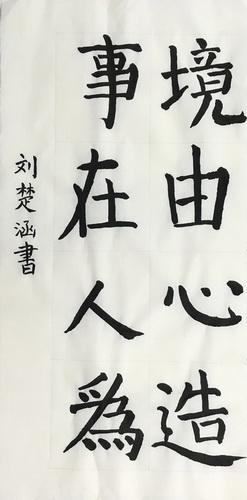 境由心造
事在人為
刘楚涵書